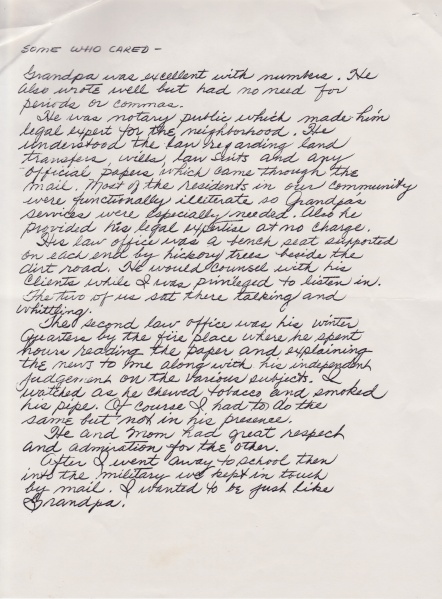 SOME WHO CARED -
Grandpa was excellent with numbers. He
also wrote well but had no need for
periods or commas.
He was notary public, which made him
legal expert for the neighborhood. He
understood the law regarding land
transfers, wills, law suits and any
official papers which came through the
mail. Most of the residents in our community
were functionally illiterate so Grandpa's
services were especially needed. Also he
provided his legal expertise at no charge.
His law office was a bench seat supported
on each end by hickory trees beside the
dirt road. He would counsel with his
clients while I was privileged to listen in.
The two of us sat there talking and
whittling.
The second law office was his winter
quarters by the fire place where he spent
hours reading the paper and explaining
the news to me along with his independent
judgement on the various subjects. I
watched as he chewed tobacco and smoked
his pipe. Of course I had to do the
same but not in his presence.
He and Mom had great respect
and admiration for the other.
After I went away to school then
into the military we kept in touch
by mail. I wanted to be just like
Grandpa.